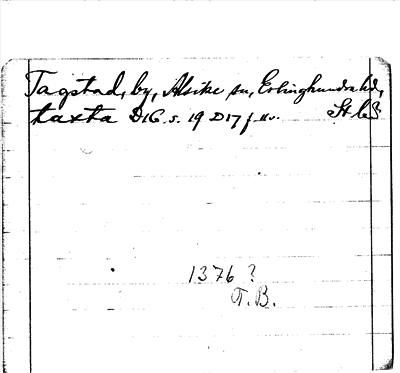 Tagstad, by, Alsike sn, Erlinghundra hd,
taxta D16 s. 19 D17 f
1376 ?
T.B.